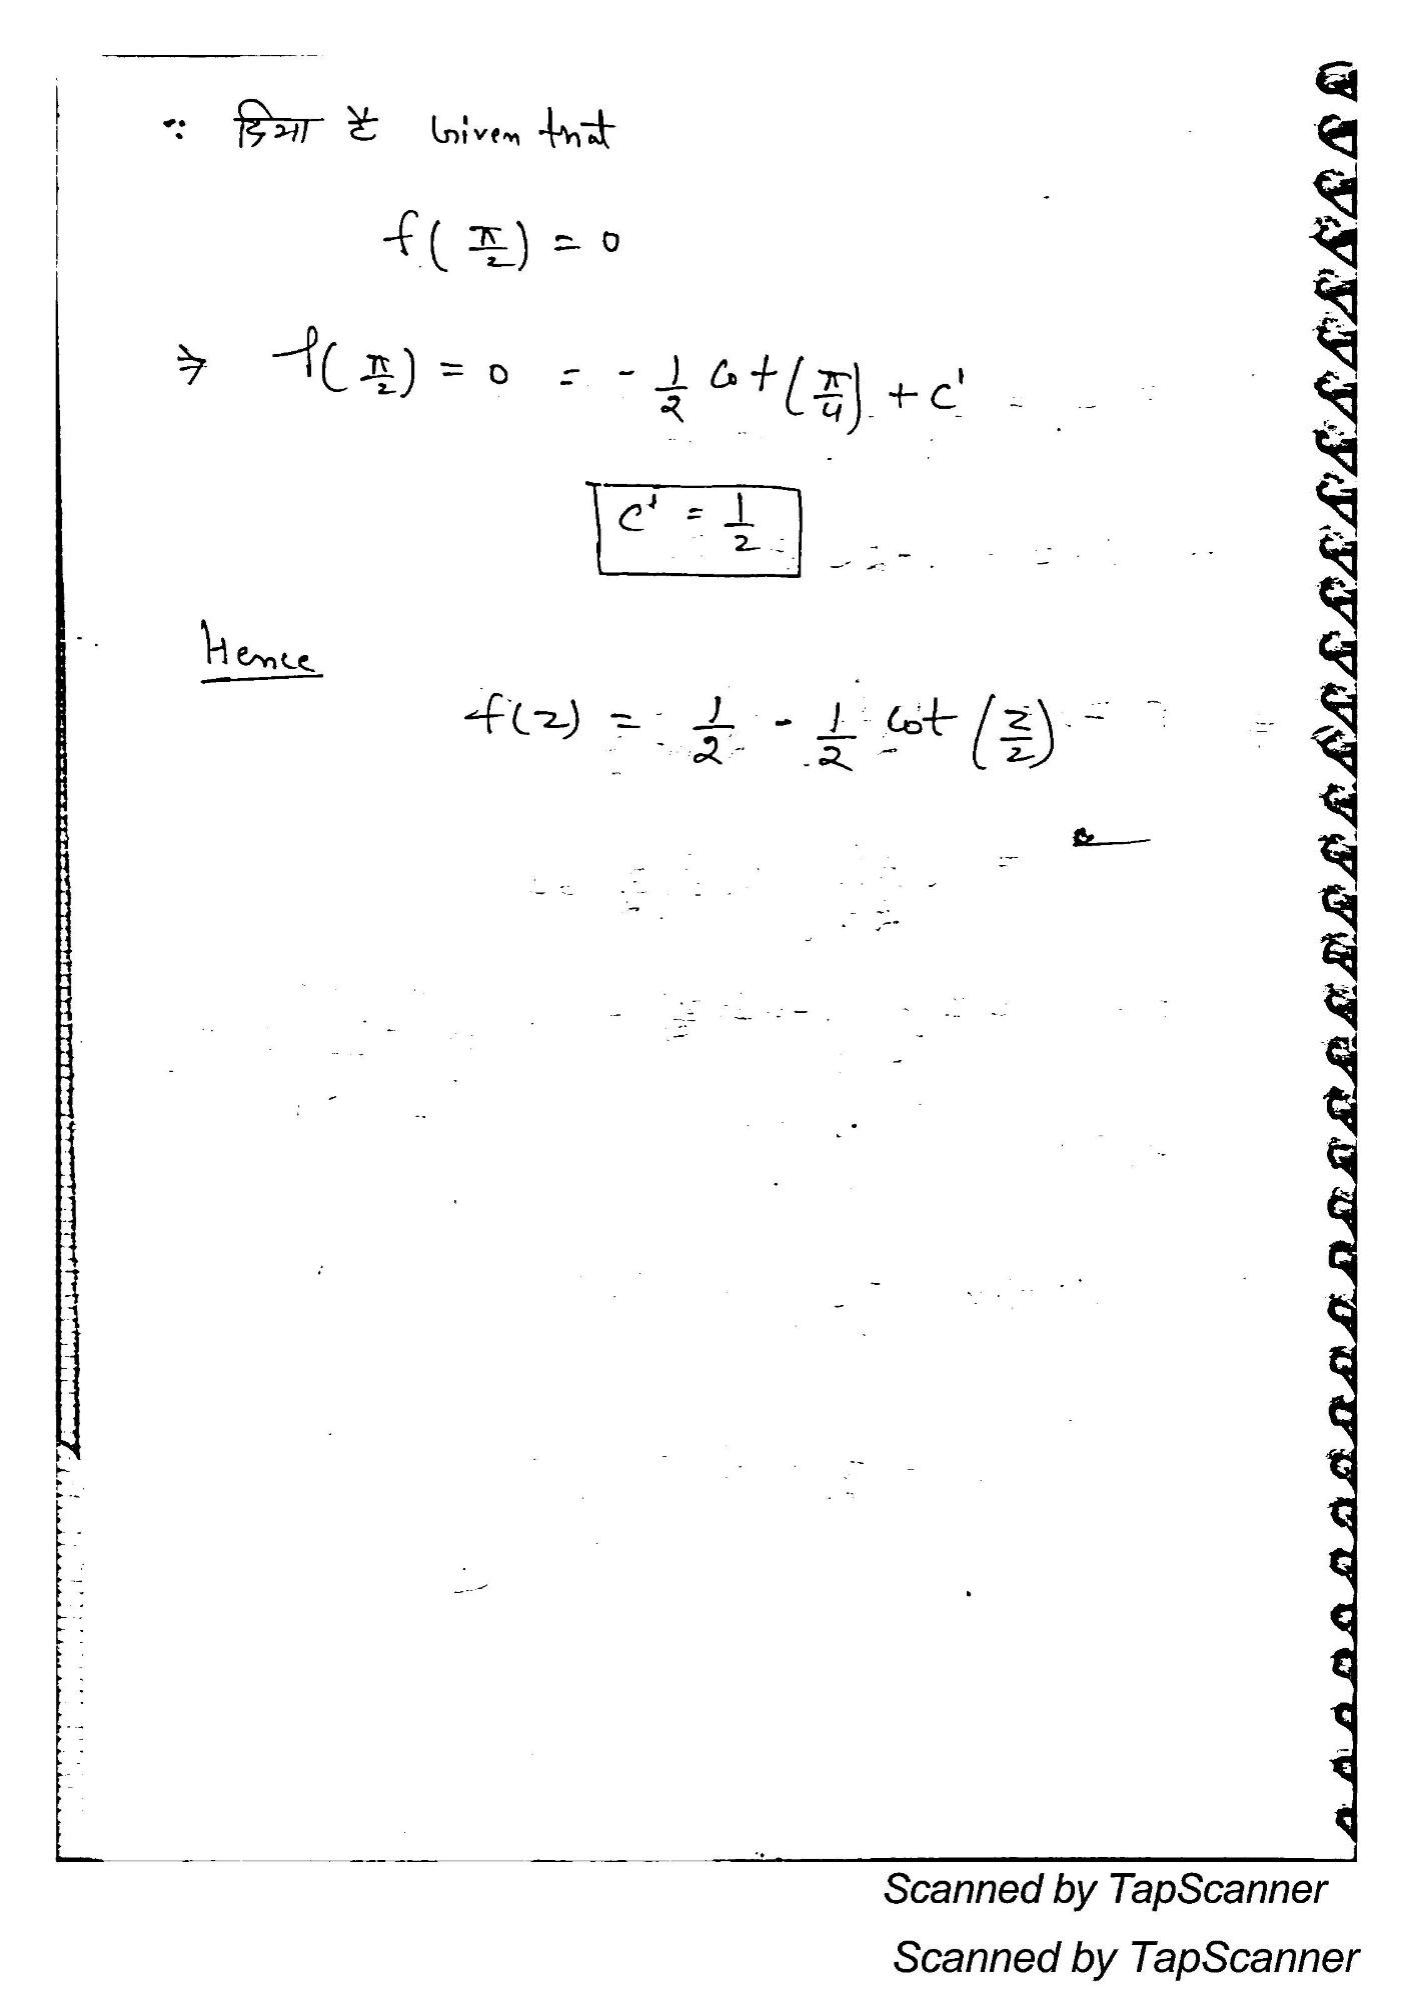 ∵ दिया है Given that
f(π/2) = 0
⇒ f(π/2) = 0 = - 1/2 cot(π/4) + c'
c' = 1/2
Hence
f(z) = 1/2 - 1/2 cot(z/2)
Scanned by TapScanner
Scanned by TapScanner